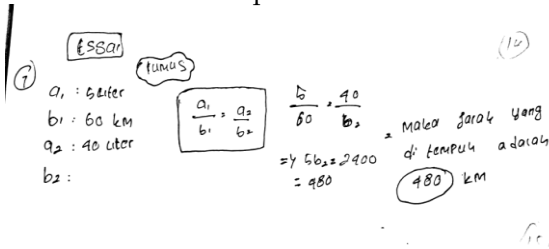 Essai
(10)
Rumus
7
a₁ : 5 Liter
b₁ : 60 km
a₂ : 40 Liter
b₂ :
a₁/b₁ = a₂/b₂
5/60 = 40/b₂
=> 5b₂ = 2400
= 480
= Maka jarak yang
di tempuh adalah
480 km